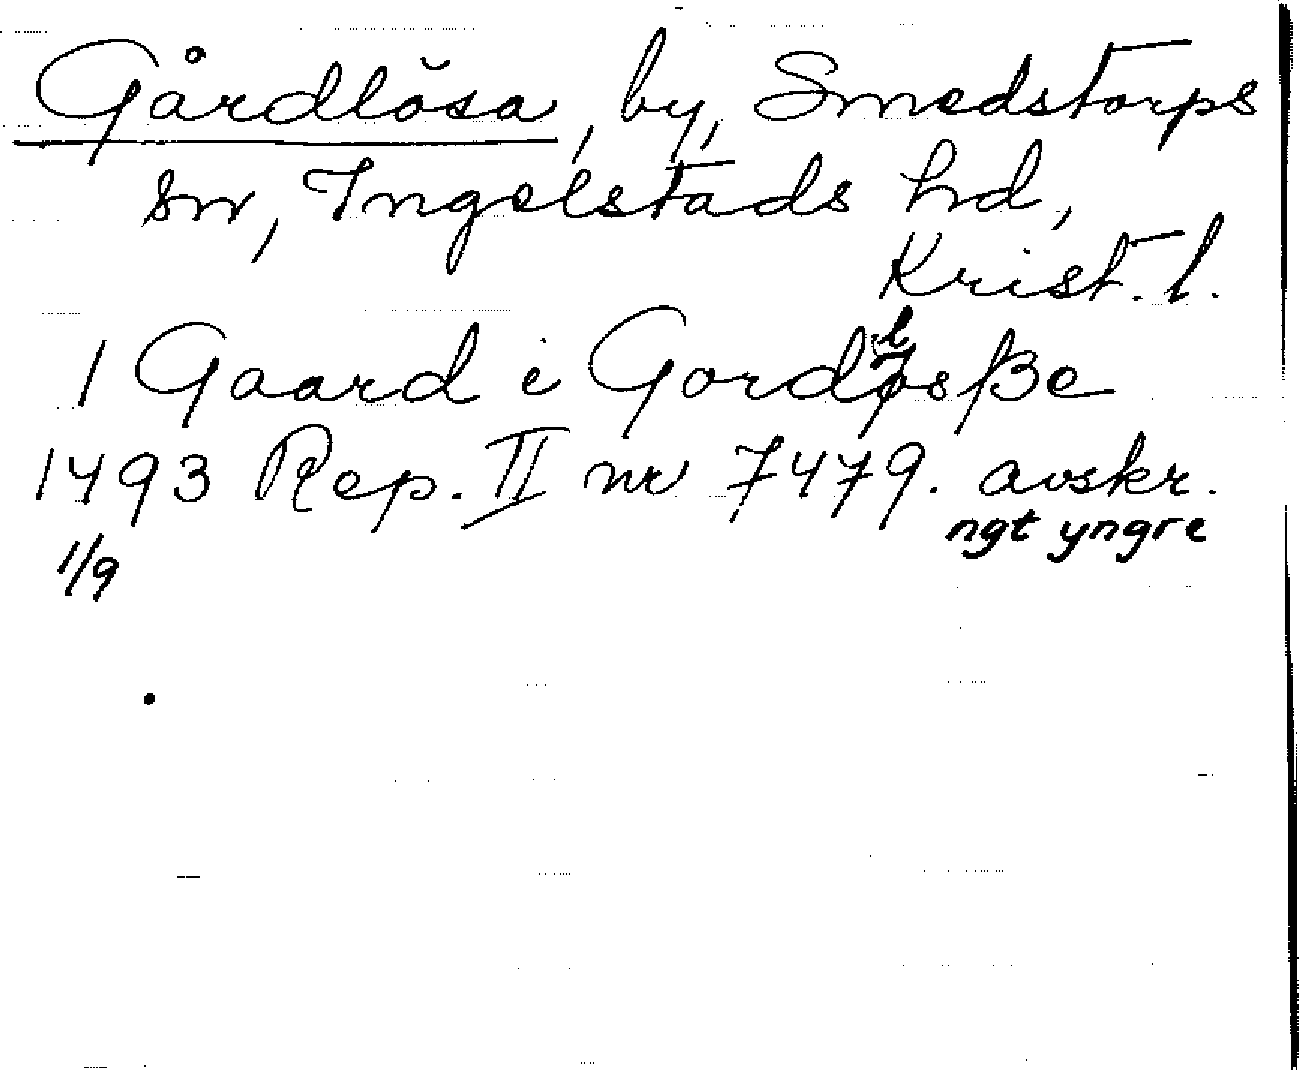 Gårdlösa, by, Smedstorps
sn, Ingelstads hd,
Krist. l.
1 Gaard i Gordløsße
1493 Rep. II nr 7479. avskr.
ngt yngre
1/9